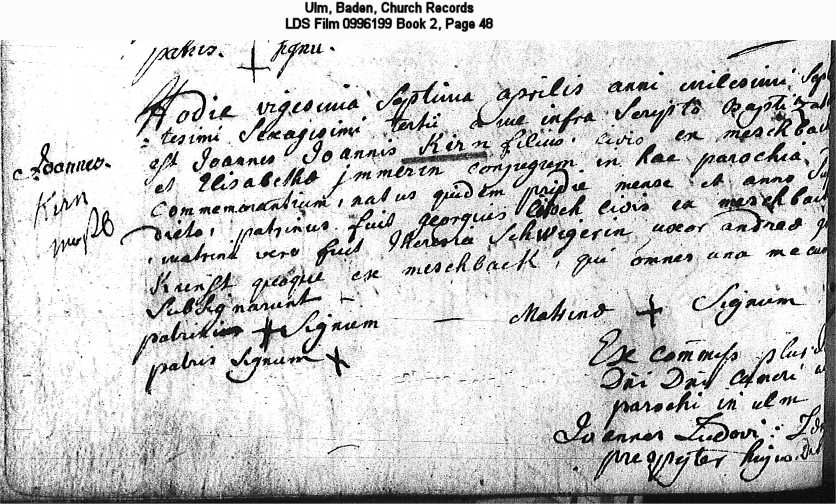 Ulm, Baden, Church Records
LDS Film 0996199 Book 2, Page 48
patris. + signu.
Hodie vigesima septima aprilis anni milesimi sep
tesimi sexagesimi tertii a me infra scripto baptizat
est Joannes Joannis Kirn filius civis ex meschbac
Joannes.
et Elisabetha Jmmerin conjugum in hac parochia
Kirn
commemorantium, natus quidem pridie mense et anno
dicto, patrinus fuit georgius civis ex meschbac
matrina vero fuit Theresia Schwegerin, uxor andrea
quoque ex meschback, qui omnes una mecum
subsignarunt
patrini + signum — Matrina + signum
patris signum +
Ex commiss
Dni Dni
parochi in ulm
Joannes Ludovi:
presbyter hujus